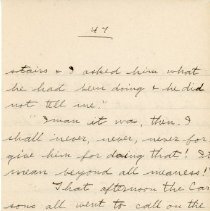 47
stairs & I asked him what
he had been doing & he did
not tell me."
"I man it was, then. I
shall never, never, never for
give him for doing that! It
mean beyond all meaness!
That afternoon the Car
sons all went to call on the